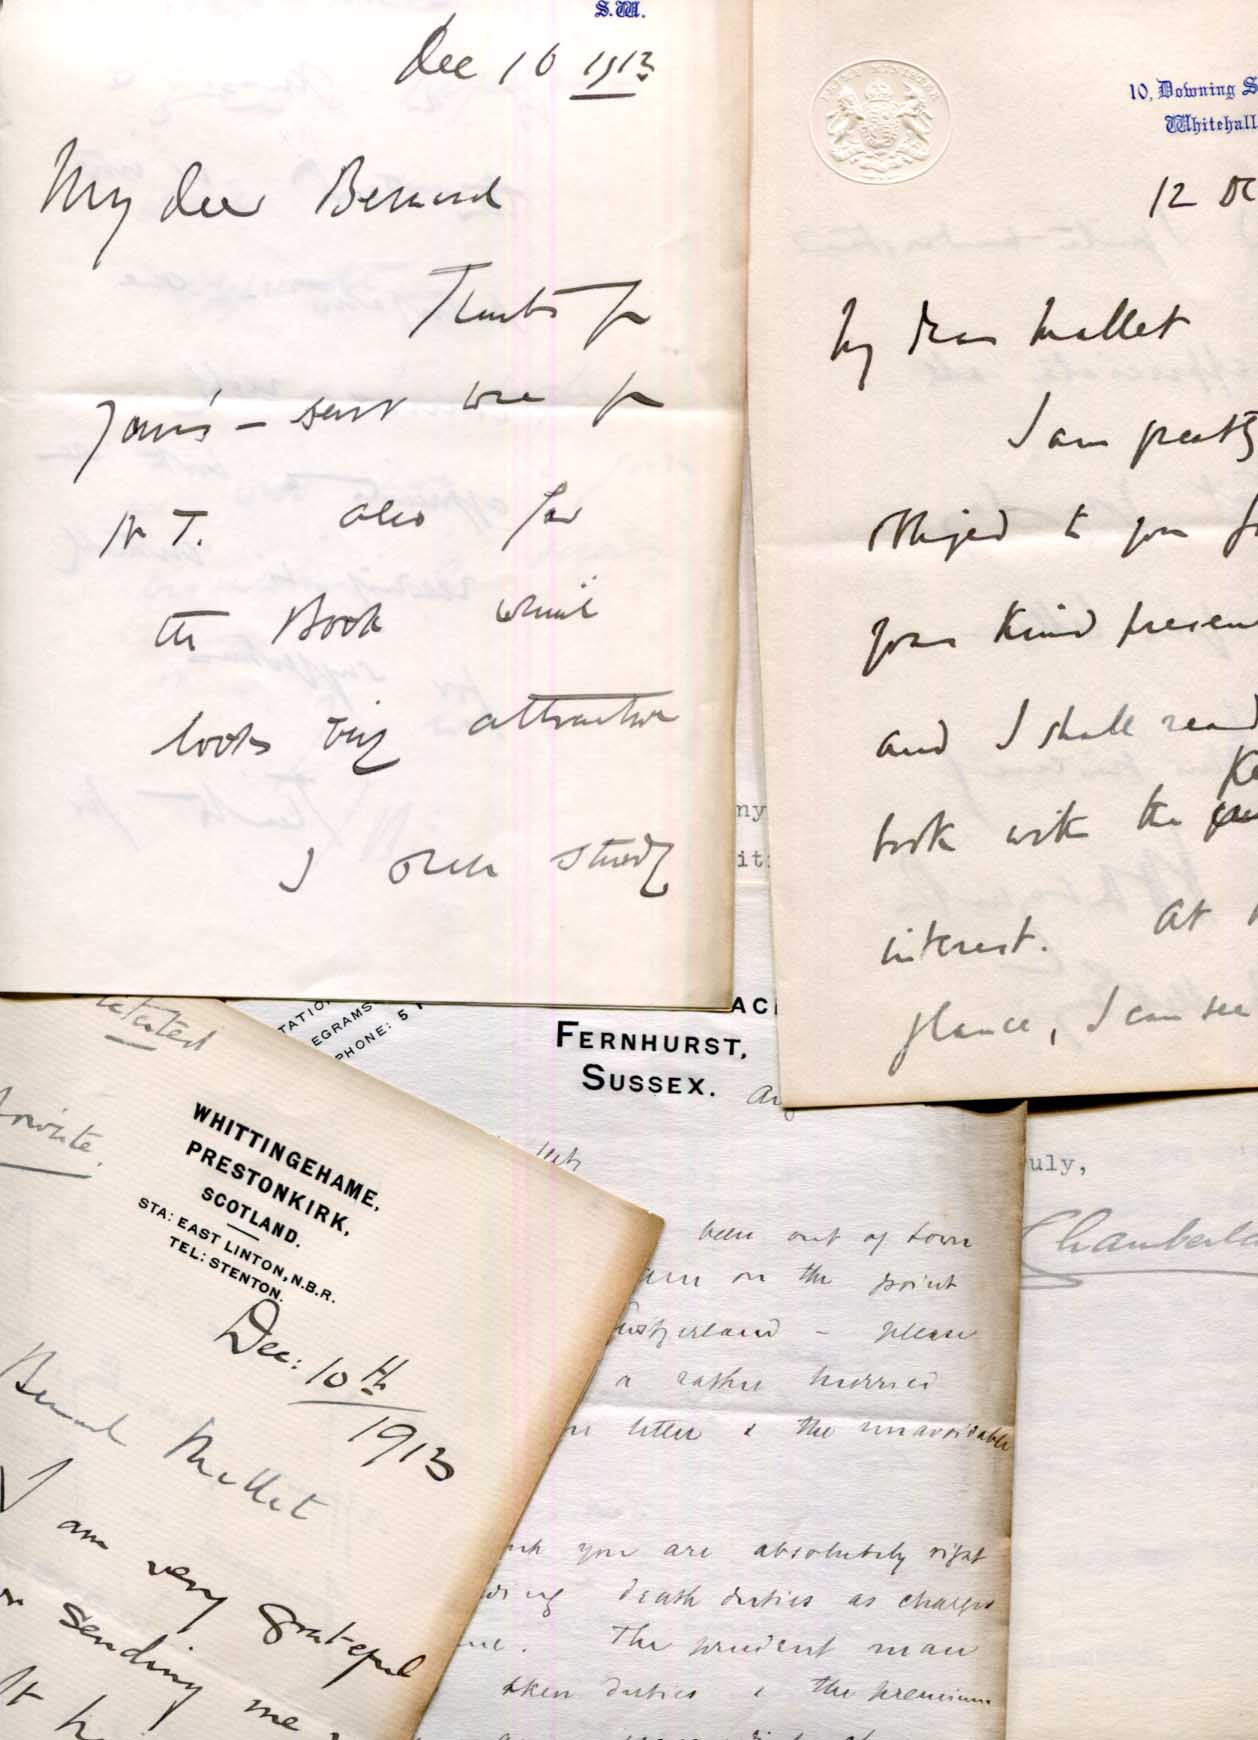 S.W.
Dec 16 1913
My dear Bernard
Thanks for
yours – sent one for
N.T. also for
the Book which
looks very attractive
I shall study
10, Downing S
Whitehall
12 De
My dear Mallet
I am greatly
obliged to you fo
your kind presen
and I shall read
Ke
book with the
interest. At
glance, I can see
ny
it
TATIO
EGRAMS
PHONE: 5
ACE
FERNHURST,
SUSSEX.
been out of town
am on the point
Switzerland – please
a rather hurried
letter & the unavoidable
nk you are absolutely right
ding death duties as charges
me. The prudent man
duties & the premium
uly,
Chamberla
WHITTINGEHAME,
PRESTONKIRK,
SCOTLAND.
STA: EAST LINTON, N.B.R.
TEL: STENTON.
Dec: 10th
1913
Bernard Mallet
I am very grateful
sending me
It h